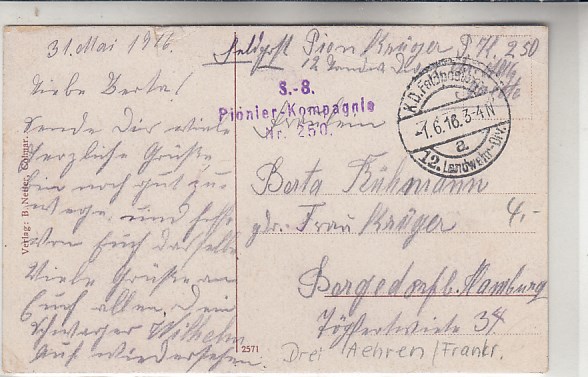 31. Mai 1916.
Liebe Berta!
Sende Dir viele
herzliche Grüße,
bin noch gut zu-
wege, und hoffe
von Euch dasselbe
Viele Grüße an
Euch allen. Dein
Schwager Wilhelm
Auf Wiedersehen.
Verlag: B. Netter, Colmar.
Feldpost Pion Krüger P. K. 250
12 Landw. Div.
S.-B.
Pionier-Kompagnie
Nr. 250.
K.D. Feldpost
-1.6.16. 3-4 N
a
12. Landwehr-Div.
Berta Kühmann
Frau Krüger
Bergedorf b. Hamburg
34
4,-
2571
Drei Aehren / Frankr.